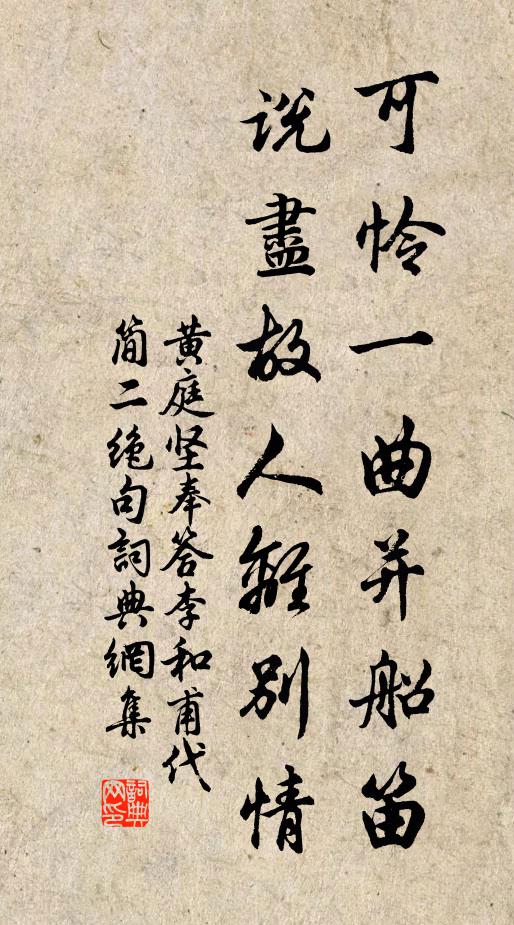 可怜一曲并船笛
説盡故人離別情
黄庭坚奉答李和甫代
简二绝句詞典網集
詞典網印